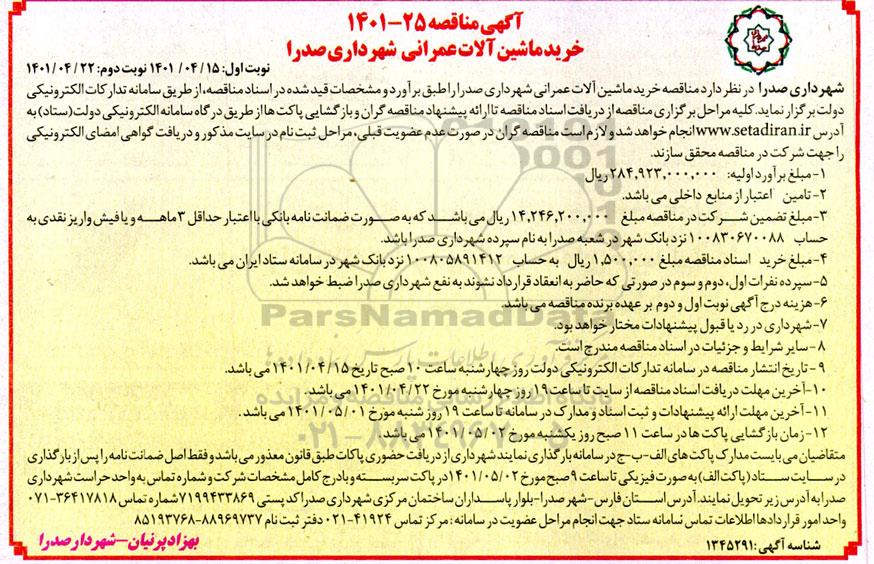 آگهی مناقصه ۲۵-۱۴۰۱
خرید ماشین آلات عمرانی شهرداری صدرا
نوبت اول: ۱۴۰۱/۰۴/۱۵ نوبت دوم: ۱۴۰۱/۰۴/۲۲
شهرداری صدرا در نظر دارد مناقصه خرید ماشین آلات عمرانی شهرداری صدرا را طبق برآورد و مشخصات قید شده در اسناد مناقصه، از طریق سامانه تدارکات الکترونیکی
دولت برگزار نماید. کلیه مراحل برگزاری مناقصه از دریافت اسناد مناقصه تا ارائه پیشنهاد مناقصه گران و بازگشایی پاکت ها از طریق درگاه سامانه الکترونیکی دولت (ستاد) به
آدرس www.setadiran.ir انجام خواهد شد و لازم است مناقصه گران در صورت عدم عضویت قبلی، مراحل ثبت نام در سایت مذکور و دریافت گواهی امضای الکترونیکی
را جهت شرکت در مناقصه محقق سازند.
۱- مبلغ برآورد اولیه: ۲۸۴,۹۲۳,۰۰۰,۰۰۰ ریال
۲- تامین اعتبار از منابع داخلی می باشد.
۳- مبلغ تضمین شرکت در مناقصه مبلغ ۱۴,۲۴۶,۲۰۰,۰۰۰ ریال می باشد که به صورت ضمانت نامه بانکی با اعتبار حداقل ۳ ماهه و یا فیش واریز نقدی به
حساب ۱۰۰۸۳۰۶۷۰۰۸۸ نزد بانک شهر در شعبه صدرا به نام سپرده شهرداری صدرا باشد.
۴- مبلغ خرید اسناد مناقصه مبلغ ۱,۵۰۰,۰۰۰ ریال به حساب ۱۰۰۸۰۵۸۹۱۴۱۲ نزد بانک شهر در سامانه ستاد ایران می باشد.
۵- سپرده نفرات اول، دوم و سوم در صورتی که حاضر به انعقاد قرارداد نشوند به نفع شهرداری صدرا ضبط خواهد شد.
۶- هزینه درج آگهی نوبت اول و دوم بر عهده برنده مناقصه می باشد.
۷- شهرداری در رد یا قبول پیشنهادات مختار خواهد بود.
۸- سایر شرایط و جزئیات در اسناد مناقصه مندرج است.
۹- تاریخ انتشار مناقصه در سامانه تدارکات الکترونیکی دولت روز چهارشنبه ساعت ۱۰ صبح تاریخ ۱۴۰۱/۰۴/۱۵ می باشد.
۱۰- آخرین مهلت دریافت اسناد مناقصه از سایت تا ساعت ۱۹ روز چهارشنبه مورخ ۱۴۰۱/۰۴/۲۲ می باشد.
۱۱- آخرین مهلت ارائه پیشنهادات و ثبت اسناد و مدارک در سامانه تا ساعت ۱۹ روز شنبه مورخ ۱۴۰۱/۰۵/۰۱ می باشد.
۱۲- زمان بازگشایی پاکت ها در ساعت ۱۱ صبح روز یکشنبه مورخ ۱۴۰۱/۰۵/۰۲ می باشد.
متقاضیان می بایست مدارک پاکت های الف-ب-ج در سامانه بارگذاری نمایند شهرداری از دریافت حضوری پاکات طبق قانون معذور می باشد و فقط اصل ضمانت نامه را پس از بارگذاری
در سایت ستاد (پاکت الف) به صورت فیزیکی تا ساعت ۹ صبح مورخ ۱۴۰۱/۰۵/۰۲ در پاکت سربسته و با درج کامل مشخصات شرکت و شماره تماس به واحد حراست شهرداری
صدرا به آدرس زیر تحویل نمایند. آدرس استان فارس-شهر صدرا-بلوار پاسداران ساختمان مرکزی شهرداری صدرا کد پستی ۷۱۹۹۴۳۳۸۶۹ شماره تماس ۳۶۴۱۷۸۱۸-۰۷۱
واحد امور قراردادها اطلاعات تماس سامانه ستاد جهت انجام مراحل عضویت در سامانه: مرکز تماس ۴۱۹۳۴-۰۲۱ دفتر ثبت نام ۸۸۹۶۹۷۳۷-۸۵۱۹۳۷۶۸
شناسه آگهی: ۱۳۴۵۲۹۱
بهزاد پرنیان-شهردار صدرا
ParsNamadData
۰۲۱-۸۸۳۴۹۶۷۰-۵